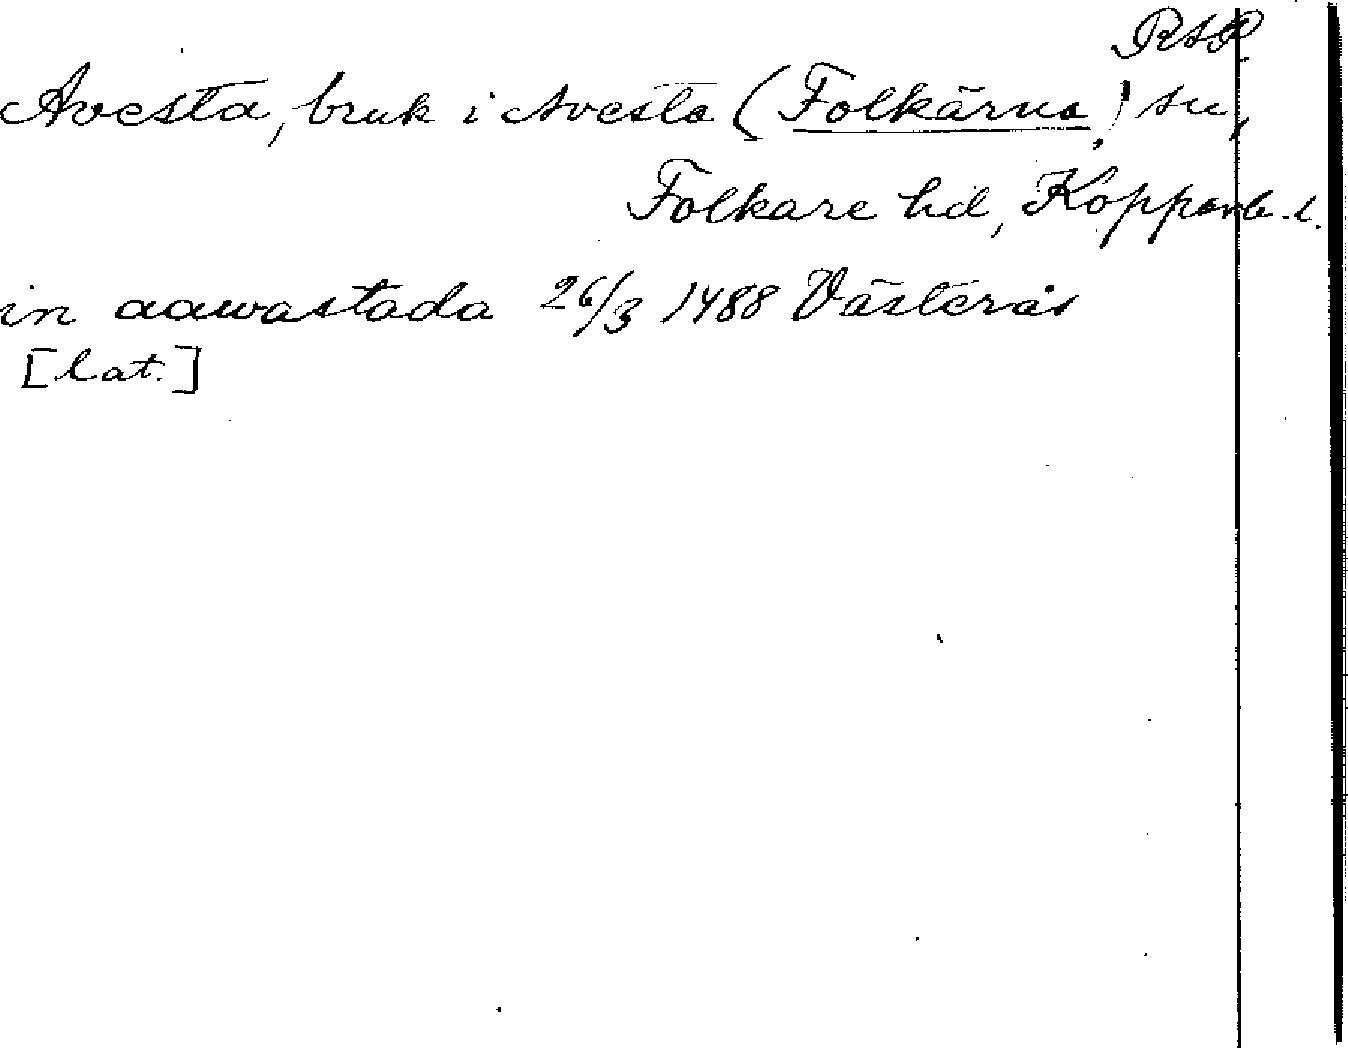 RAP
Avesta, bruk i Avesta (Folkärna,) sn,
Folkare hd, Kopparb. l.
in aawastada 26/3 1488 Västerås
[lat.]